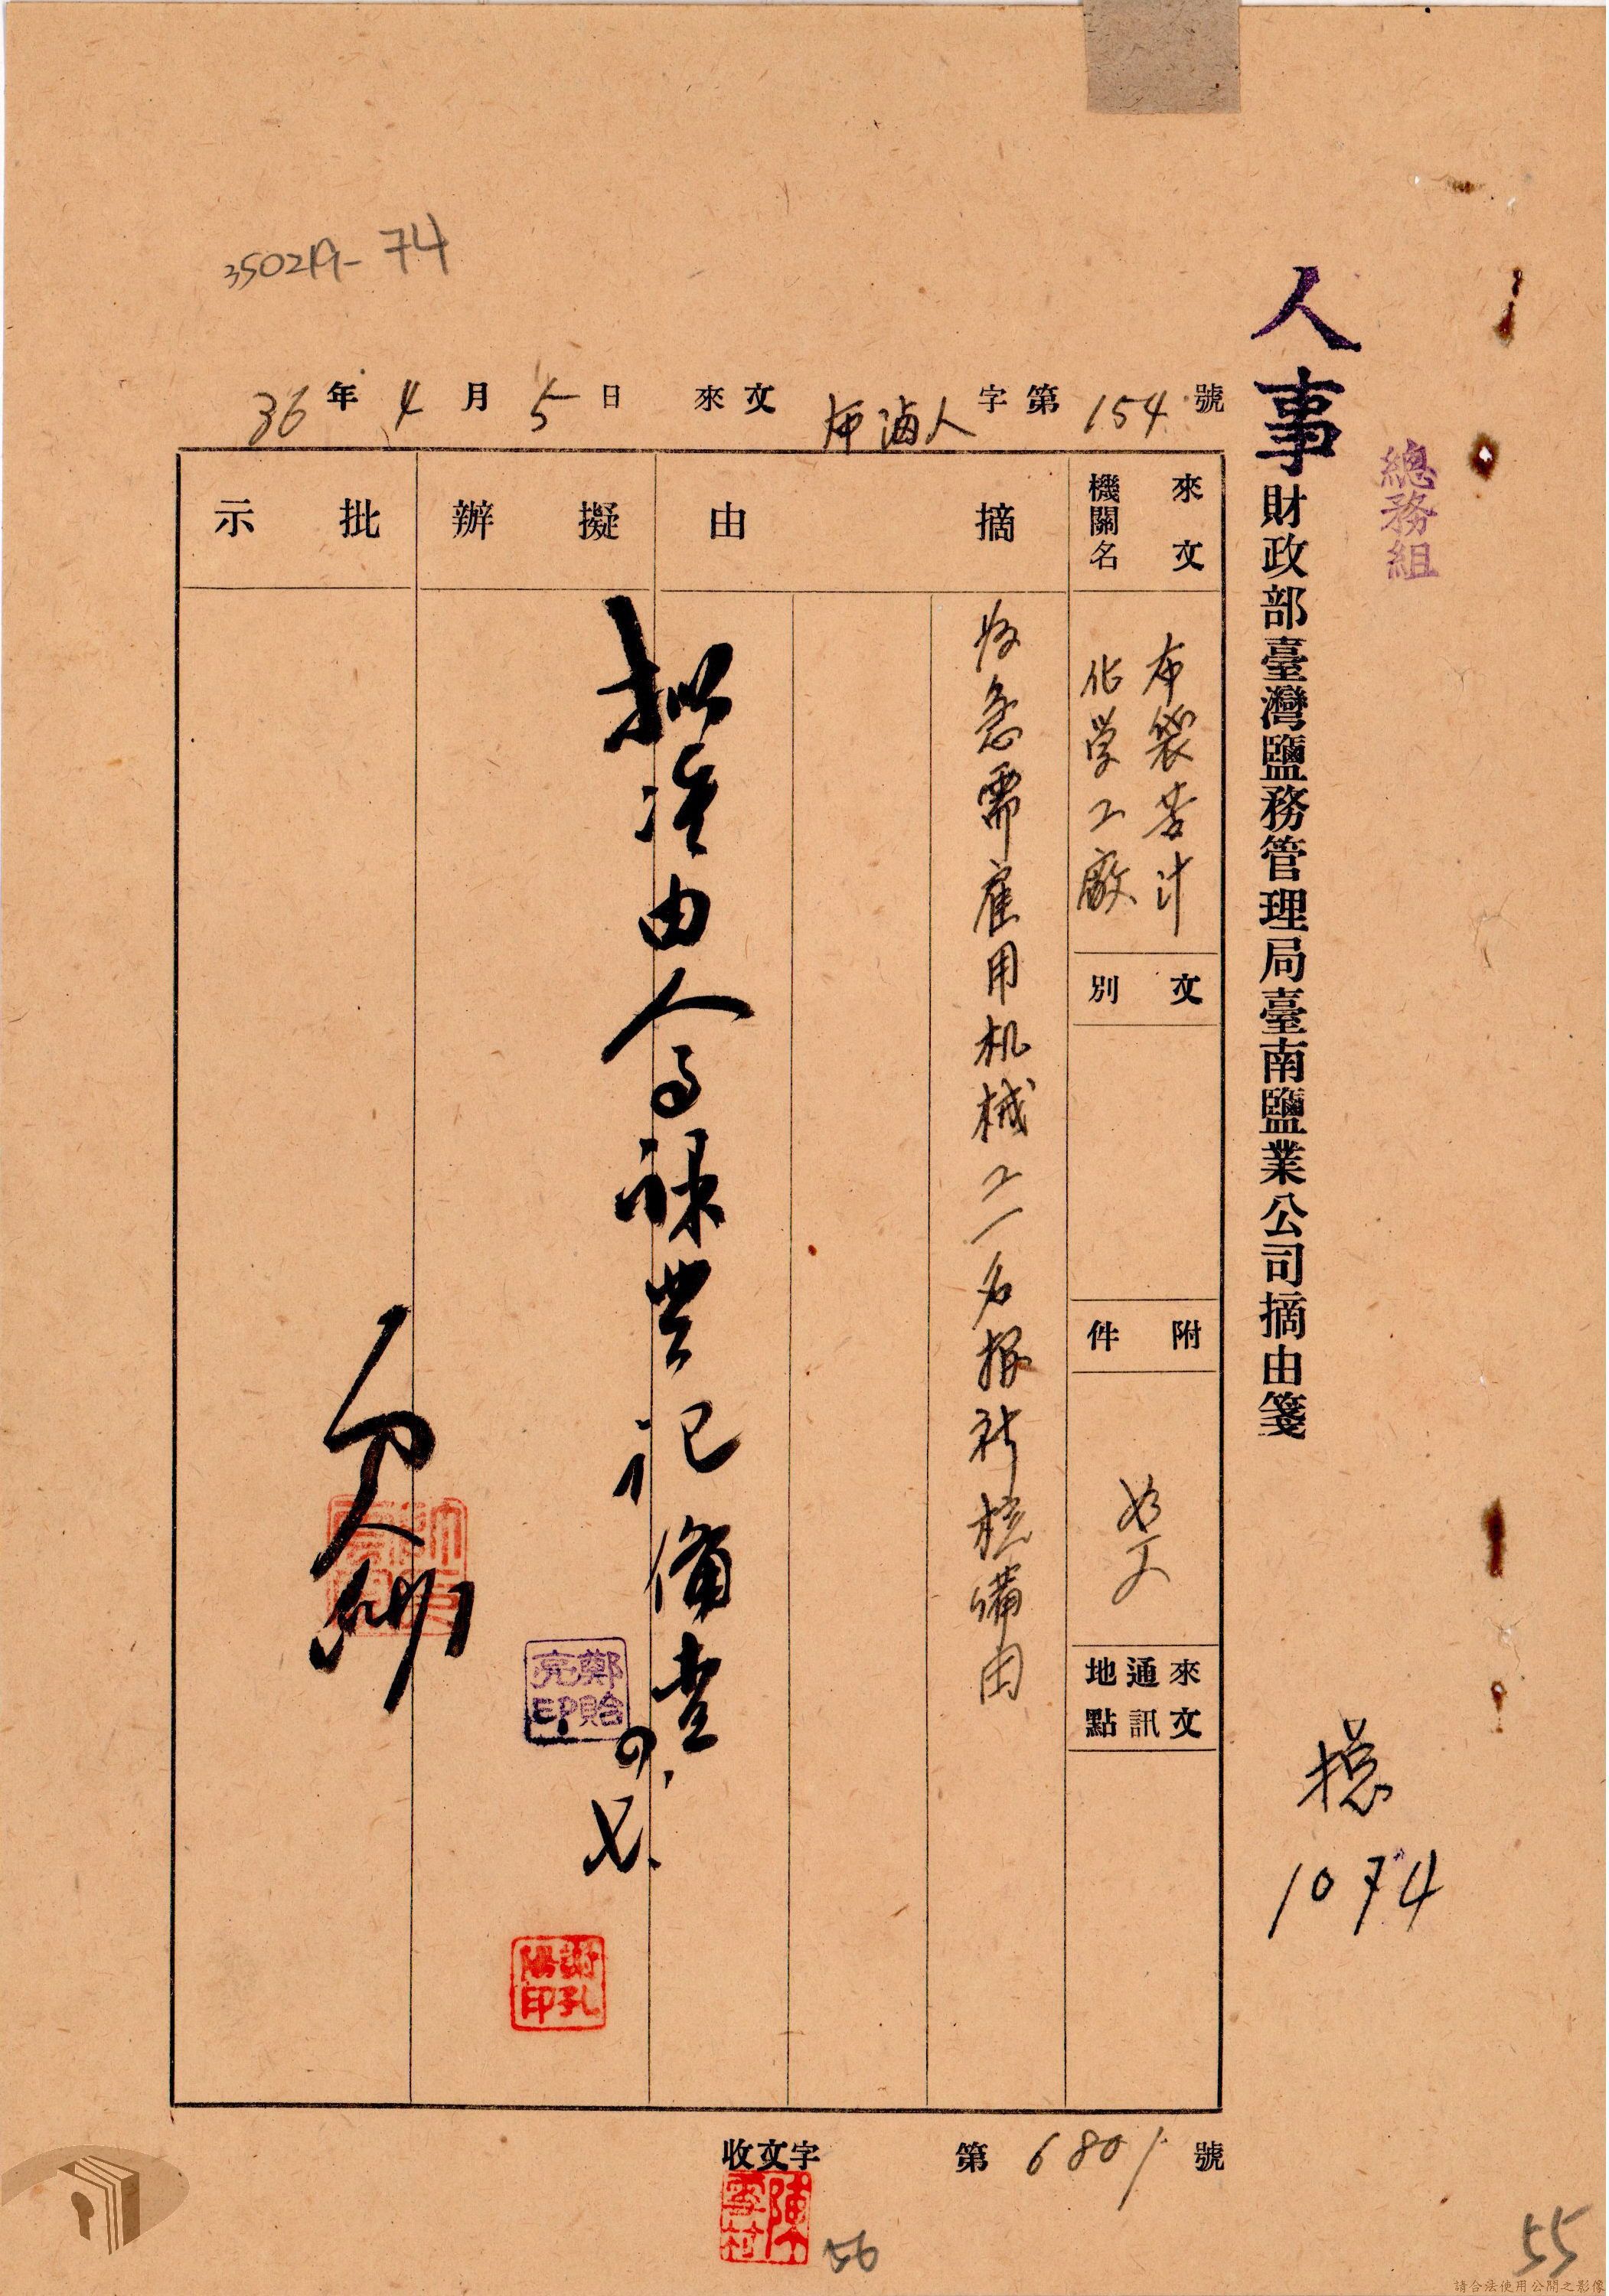 350219-74
人事
總務組
財政部臺灣鹽務管理局臺南鹽業公司摘由箋
36年4月5日 來文 布滷人字第154號
來文機關名
布袋苦汁
化学工廠
文別
附件
如文
來文通訊地點
摘由
為急需雇用机械工一名報祈核備由
擬辦
擬准由人事課登記備查
四.七.
批示
鄭貽亮印
謝孔陽印
總
1074
收文字第6801號
陳雪村
56
55
請合法使用公開之影像